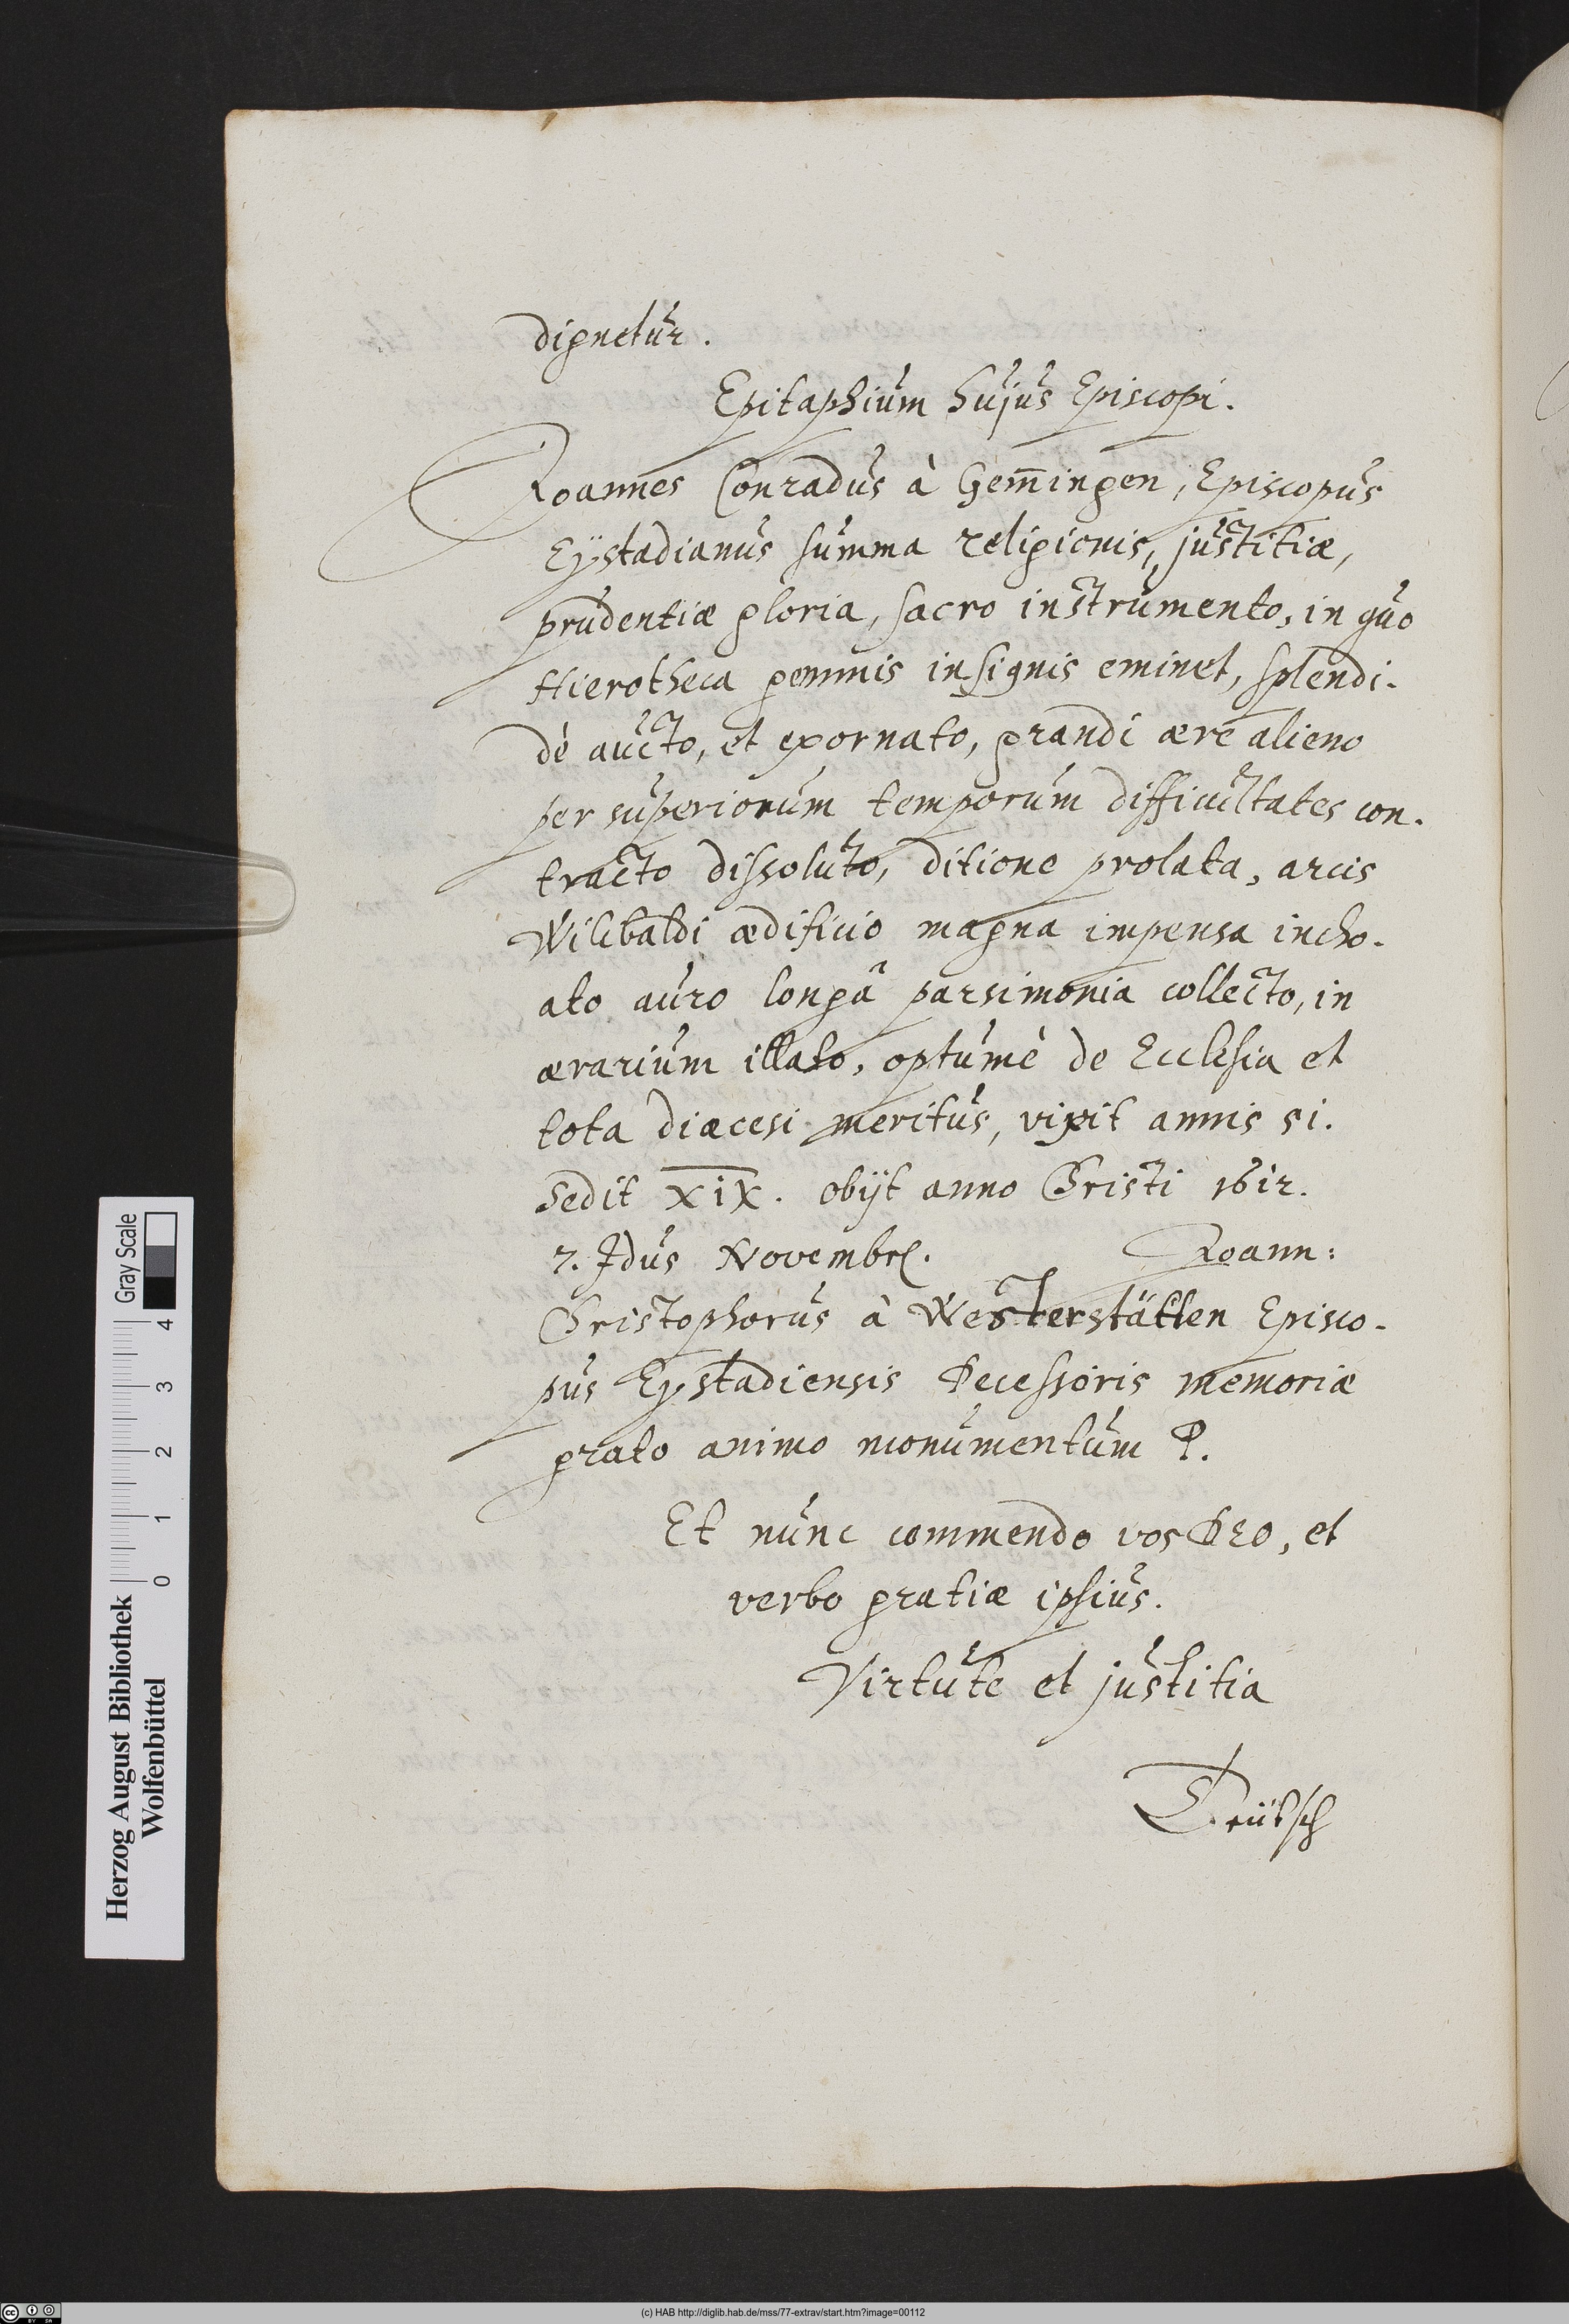 dignetur.
Epitaphium hujus Episcopi.
Joannes Conradus à Gem̅ingen, Episcopus
Eÿstadianus summa religionis, justitiæ,
prudentiæ gloria, sacro instrumento, in quo
Hierotheca gemmis insignis eminet, splendi-
dè aucto, et exornato, grandi ære alieno
per superiorum temporum difficultates con-
tracto dissoluto, ditione prolata, arcis
Wilibaldi ædificio magna impensa incho-
ato auro longâ parsimonia collecto, in
ærarium illato, optumè de Ecclesia et
tota diæcesi meritus, vixit annis 51.
Sedit XIX. obijt anno Christi 1612.
7. Idus Novembr.
Joann:
Christophorus à Westerstätten Episco-
pus Eystadiensis Decessoris memoriæ
grato animo monumentum P.
Et nunc commendo vos DEO, et
verbo gratiæ ipsius.
Virtute et justitia
Teütsch
Herzog August Bibliothek
Wolfenbüttel
0 1 2 3 4
Gray Scale
(c) HAB http://diglib.hab.de/mss/77-extrav/start.htm?image=00112